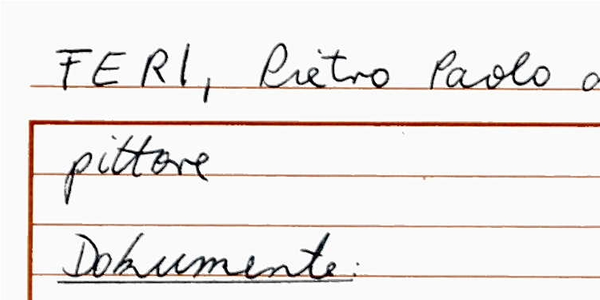 FERI, Pietro Paolo
pittore
Dokumente: